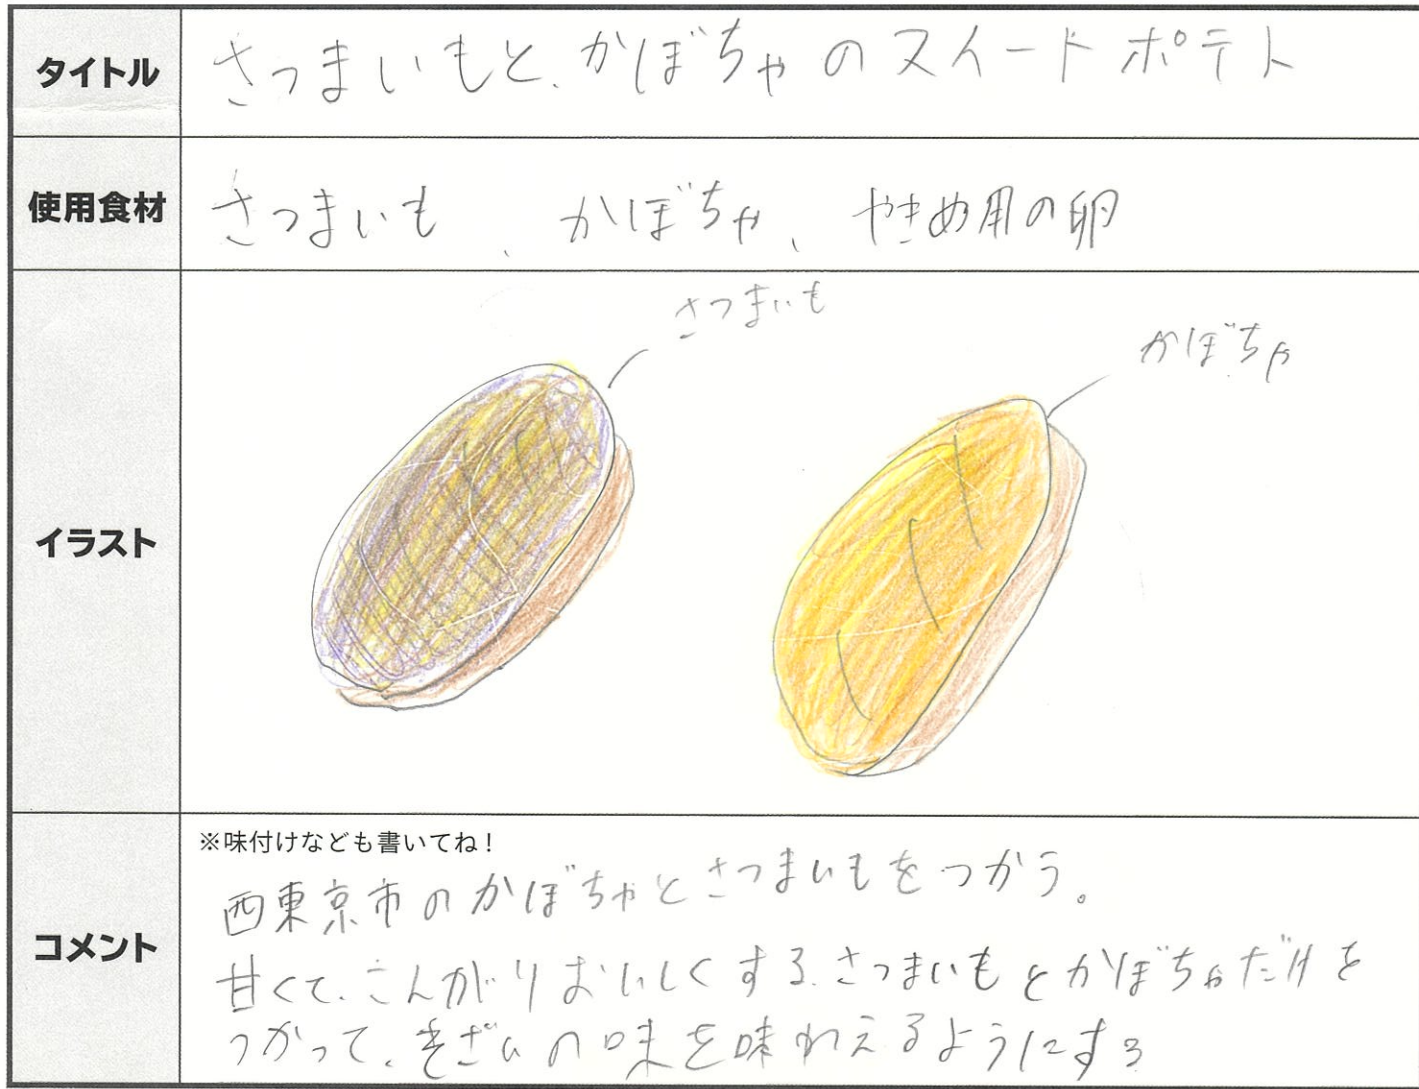 タイトル
さつまいもと、かぼちゃのスイードポテト
使用食材
さつまいも、かぼちゃ、やきめ用の卵
イラスト
さつまいも
かぼちゃ
コメント
※味付けなども書いてね!
西東京市のかぼちゃとさつまいもをつかう。
甘くて、こんがりおいしくする。さつまいもとかぼちゃだけを
つかって、の味を味わえるようにする